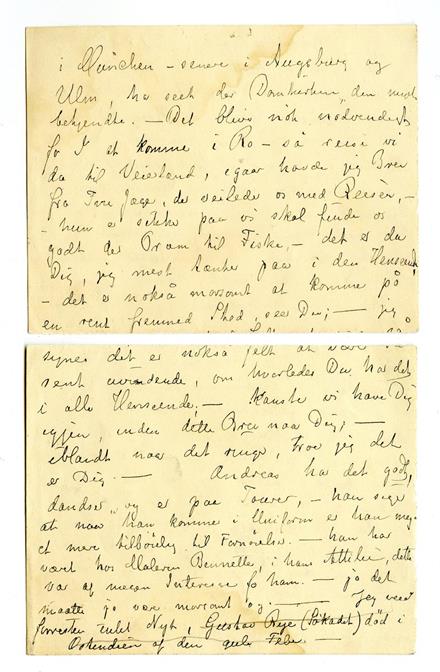 i München – senere i Augsburg og
Ulm, har seet der Domkirken, den mest
bekjendte. – Det bliver nok nødvendigt
for I at komme i Ro – så reise vi
da til , igaar havde jeg Brev
fra Fru , de veilede os med Reisen, –
– hun er sikker paa vi skal finde os
godt der til Fiske, – det er da
Dig, jeg mest tænker paa i den Henseende,
– det er nokså morsomt at komme på
en rent fremmed Sted, seer Du; – jeg
synes det er nokså leit at være
sent uvidende, om hvorledes Du har det
i alle Henseende, – Kanske vi have Dig
igjen, inden dette Brev naar Dig; –
iblandt naar det ringe, troer jeg det
er Dig. – Andreas har det godt,
dandser og er paa Tourer, – han siger
at naar han kommer i Uniform er han meg-
et mere tilbøielig til Fornøielser. – han har
vært hos Maleren Bennetter, i hans Attelier, dette
var af megen Interesse for ham. – jo det
maatte jo være morsomt og. – Jeg veed
forresten intet Nyt, Gustav (Sökadet) død i
Ostindien af den gule Feber. –